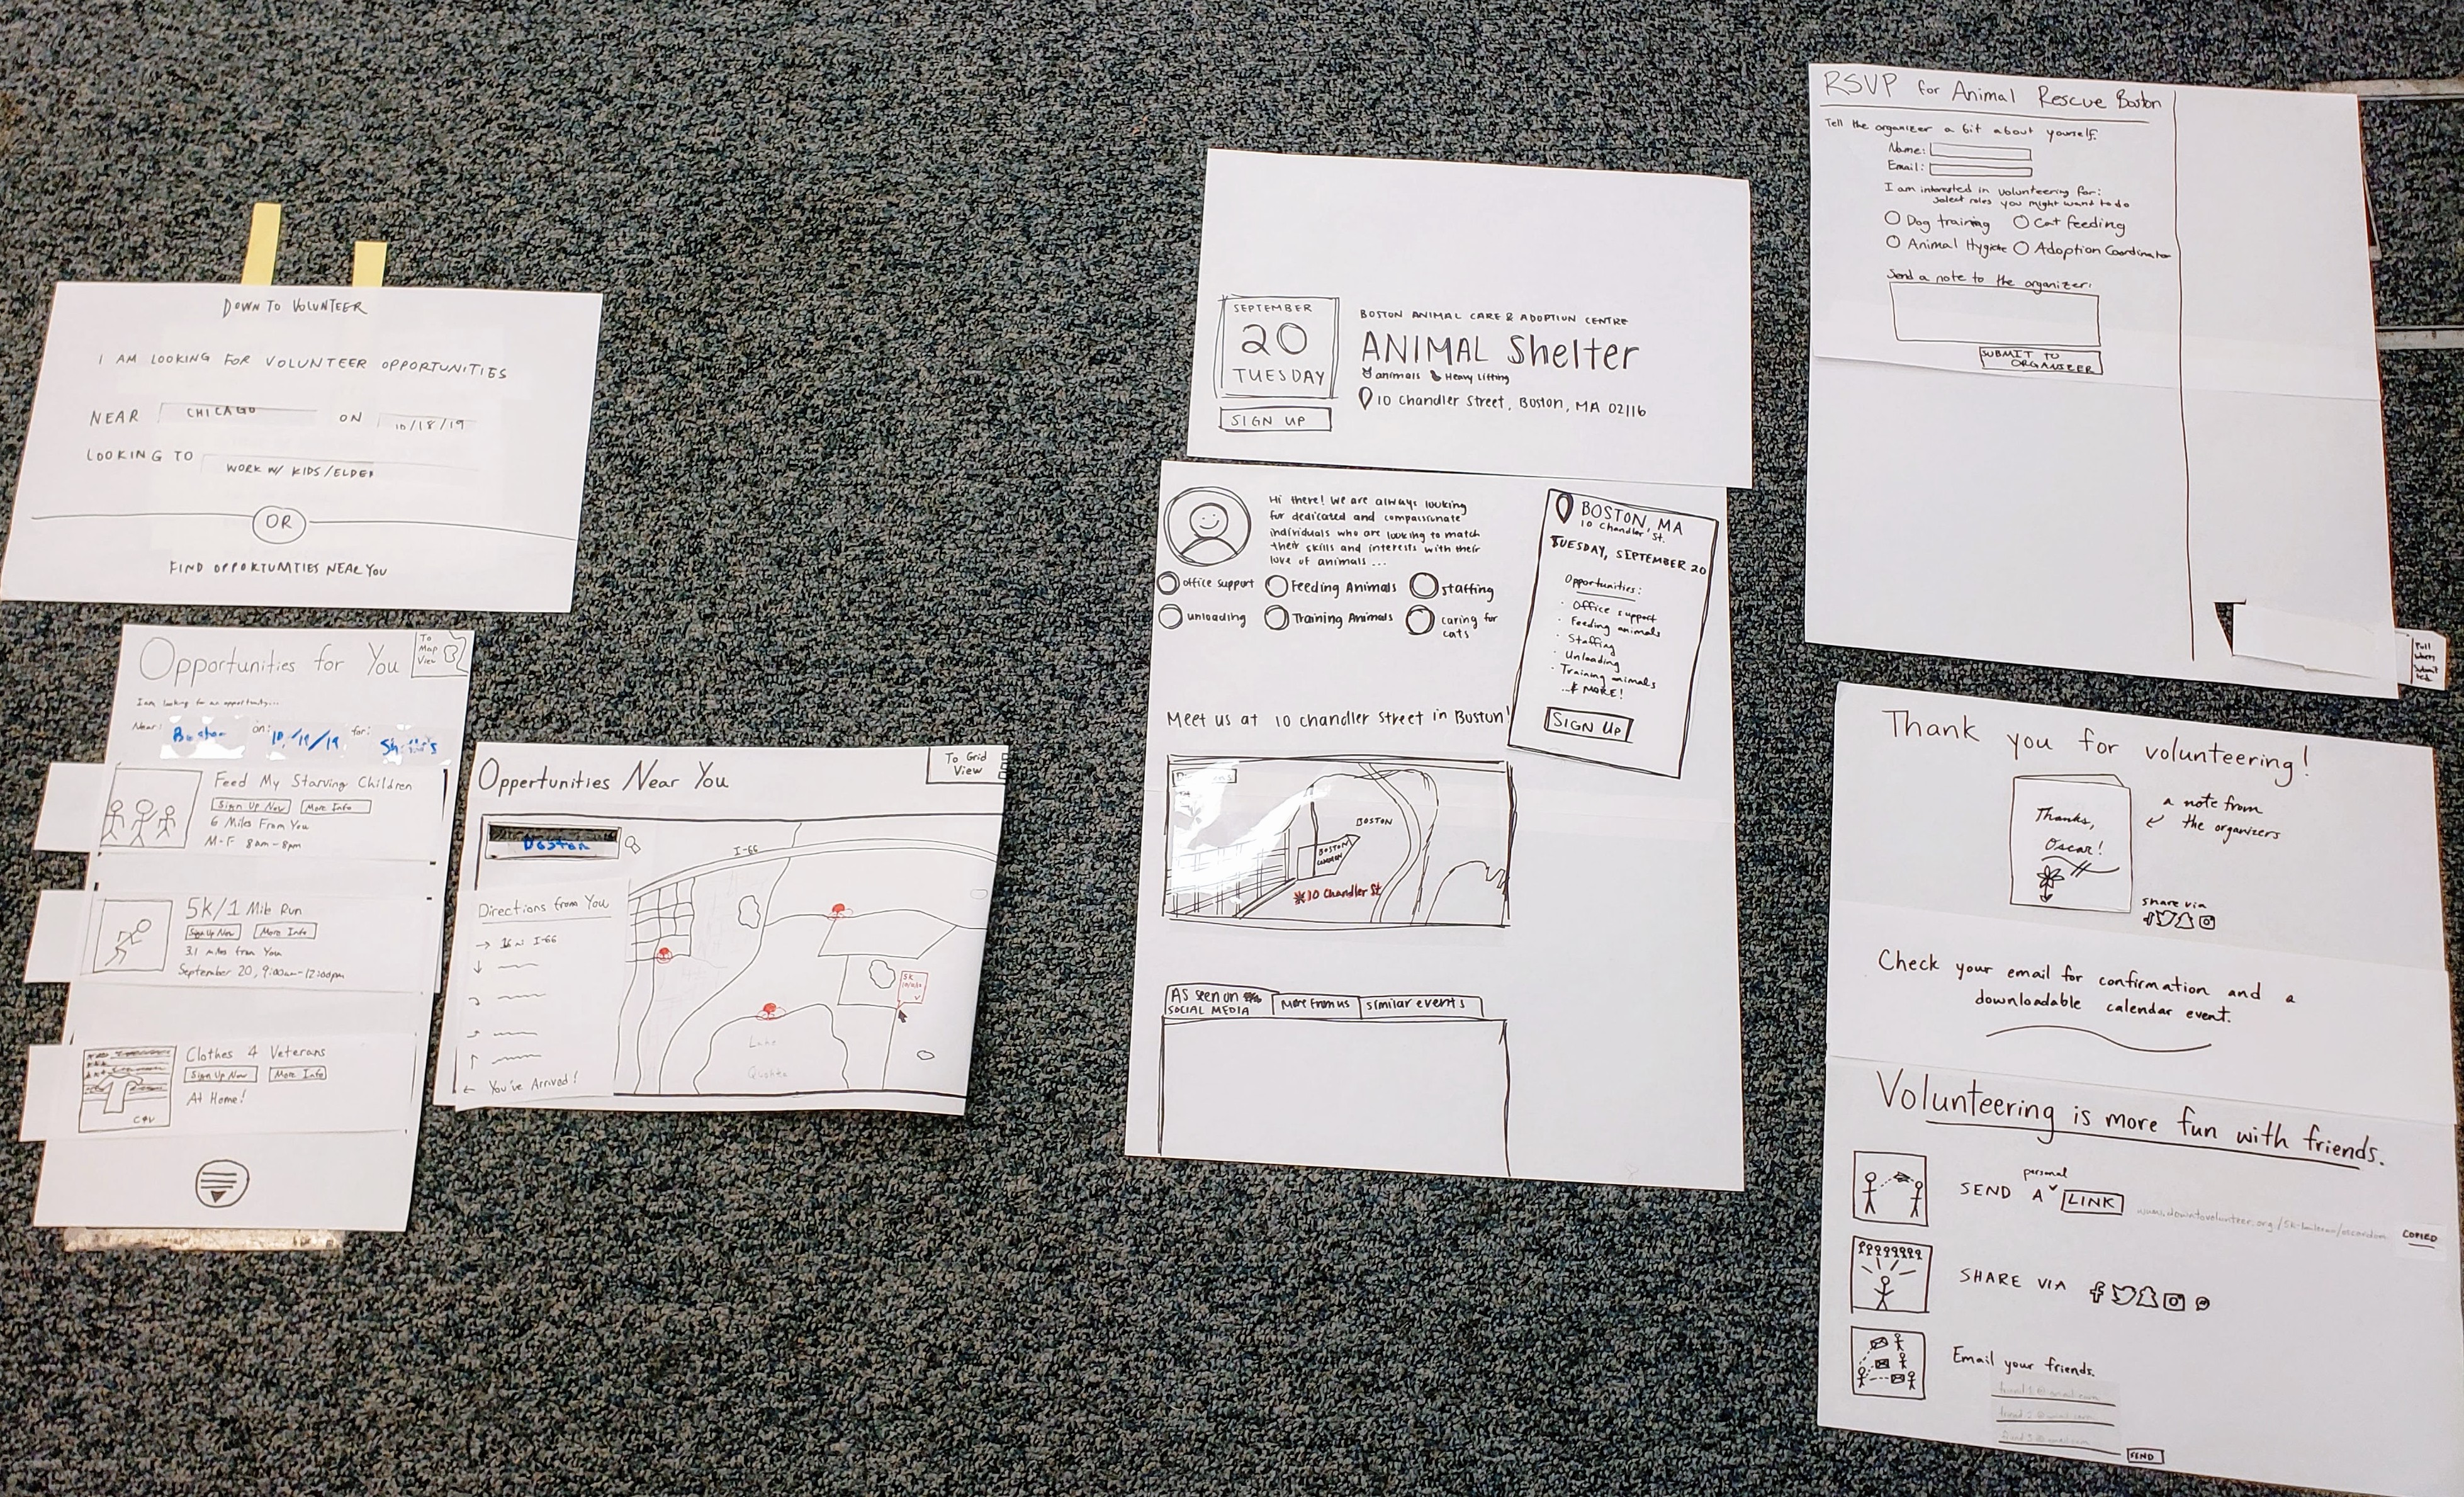 DOWN TO VOLUNTEER
I AM LOOKING FOR VOLUNTEER OPPORTUNITIES
NEAR CHICAGO ON 10/18/19
LOOKING TO WORK W/ KIDS/ELDER
OR
FIND OPPORTUNITIES NEAR YOU
Opportunities for You
To
Map
View
I am looking for an opportunity...
Near: Boston on: 10/19/19 for:
Feed My Starving Children
Sign Up Now More Info
6 Miles From You
M-F 8am-8pm
5k/1 Mile Run
Sign Up Now More Info
3.1 miles from You
September 20, 9:00am-12:00pm
Clothes 4 Veterans
Sign Up Now More Info
At Home!
C4V
Oppertunities Near You
To Grid
View
Boston
I-66
Directions from You
I-66
You've Arrived!
5k
Lake
SEPTEMBER
20
TUESDAY
SIGN UP
BOSTON ANIMAL CARE & ADOPTION CENTRE
ANIMAL Shelter
animals Heavy Lifting
10 Chandler Street, Boston, MA 02116
Hi there! We are always looking
for dedicated and compassionate
individuals who are looking to match
their skills and interests with their
love of animals ...
office support Feeding Animals staffing
unloading Training Animals caring for
cats
BOSTON, MA
10 Chandler St.
TUESDAY, SEPTEMBER 20
Opportunities:
· Office support
· Feeding animals
· Staffing
· Unloading
· Training animals
...& MORE!
SIGN UP
Meet us at 10 chandler street in Boston!
BOSTON
BOSTON
COMMON
10 Chandler St
As seen on
SOCIAL MEDIA
More from us
similar events
RSVP for Animal Rescue Boston
Tell the organizer a bit about yourself.
Name:
Email:
I am interested in volunteering for:
select roles you might want to do
Dog training Cat feeding
Animal Hygiene Adoption Coordinator
Send a note to the organizer:
SUBMIT TO
ORGANIZER
Pull
when
submit
ted
Thank you for volunteering!
Thanks,
Oscar!
a note from
the organizers
share via
Check your email for confirmation and a
downloadable calendar event.
Volunteering is more fun with friends.
SEND A personal LINK
COPIED
SHARE VIA
Email your friends.
friend1@gmail.com
friend2@gmail.com
friend3@gmail.com
SEND